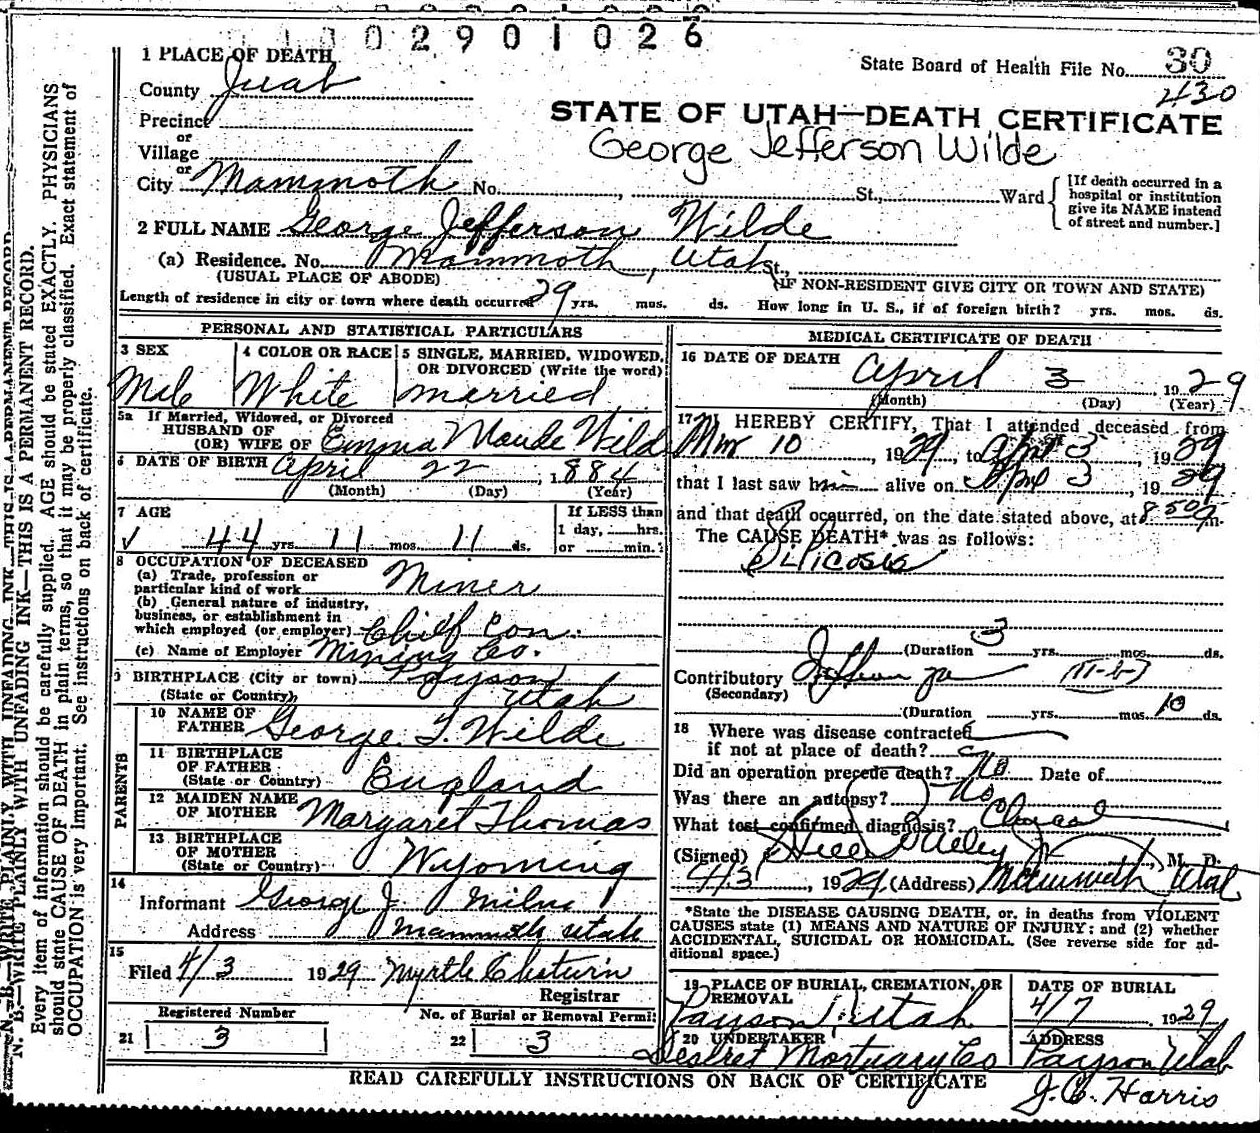 0 0 2 9 0 1 0 2 6
1 PLACE OF DEATH
State Board of Health File No. 30
430
County Juab
STATE OF UTAH—DEATH CERTIFICATE
Precinct
George Jefferson Wilde
or
Village
or
City Mammoth No. , St., Ward
[If death occurred in a hospital or institution give its NAME instead of street and number.]
2 FULL NAME George Jefferson Wilde
(a) Residence. No. Mammoth, Utah St.,
(USUAL PLACE OF ABODE) (IF NON-RESIDENT GIVE CITY OR TOWN AND STATE)
Length of residence in city or town where death occurred 29 yrs. mos. ds. How long in U. S., if of foreign birth? yrs. mos. ds.
PERSONAL AND STATISTICAL PARTICULARS
3 SEX Male
4 COLOR OR RACE White
5 SINGLE, MARRIED, WIDOWED, OR DIVORCED (Write the word) married
5a If Married, Widowed, or Divorced
HUSBAND OF
(OR) WIFE OF Emma Maude Wild
6 DATE OF BIRTH April 22, 1884
(Month) (Day) (Year)
7 AGE
44 yrs. 11 mos. 11 ds.
If LESS than
1 day, hrs.
or min.
8 OCCUPATION OF DECEASED
(a) Trade, profession or
particular kind of work Miner
(b) General nature of industry,
business, or establishment in
which employed (or employer) Chief Con.
(c) Name of Employer Mining Co.
9 BIRTHPLACE (City or town) Payson
(State or Country) Utah
PARENTS
10 NAME OF FATHER George T. Wilde
11 BIRTHPLACE OF FATHER (State or Country) England
12 MAIDEN NAME OF MOTHER Margaret Thomas
13 BIRTHPLACE OF MOTHER (State or Country) Wyoming
14
Informant George J. Milne
Address Mammoth Utah
15
Filed 4/3 1929 Myrtle
Registrar
Registered Number
21 3
No. of Burial or Removal Permit
22 3
MEDICAL CERTIFICATE OF DEATH
16 DATE OF DEATH April 3, 1929
(Month) (Day) (Year)
17 I HEREBY CERTIFY, That I attended deceased from
Mar 10, 1929, to April 3, 1929
that I last saw him alive on April 3, 1929
and that death occurred, on the date stated above, at 8 50 m.
The CAUSE DEATH* was as follows:
Silicosis
(Duration 3 yrs. mos. ds.
Contributory
(Secondary)
(Duration yrs. mos. 10 ds.
18 Where was disease contracted
if not at place of death?
Did an operation precede death? No Date of
Was there an autopsy? No
What test confirmed diagnosis?
(Signed) Jr M. D.
4/3, 1929 (Address) Utah
*State the DISEASE CAUSING DEATH, or, in deaths from VIOLENT
CAUSES state (1) MEANS AND NATURE OF INJURY: and (2) whether
ACCIDENTAL, SUICIDAL OR HOMICIDAL. (See reverse side for ad-
ditional space.)
19 PLACE OF BURIAL, CREMATION, OR REMOVAL
Payson, Utah
DATE OF BURIAL
4/7 1929
20 UNDERTAKER
Deseret Mortuary Co
ADDRESS
Payson Utah
READ CAREFULLY INSTRUCTIONS ON BACK OF CERTIFICATE
J. C. Harris
N. B.—WRITE PLAINLY WITH UNFADING INK—THIS IS A PERMANENT RECORD.
Every item of information should be carefully supplied. AGE should be stated EXACTLY. PHYSICIANS
should state CAUSE OF DEATH in plain terms, so that it may be properly classified. Exact statement of
OCCUPATION is very important. See instructions on back of certificate.